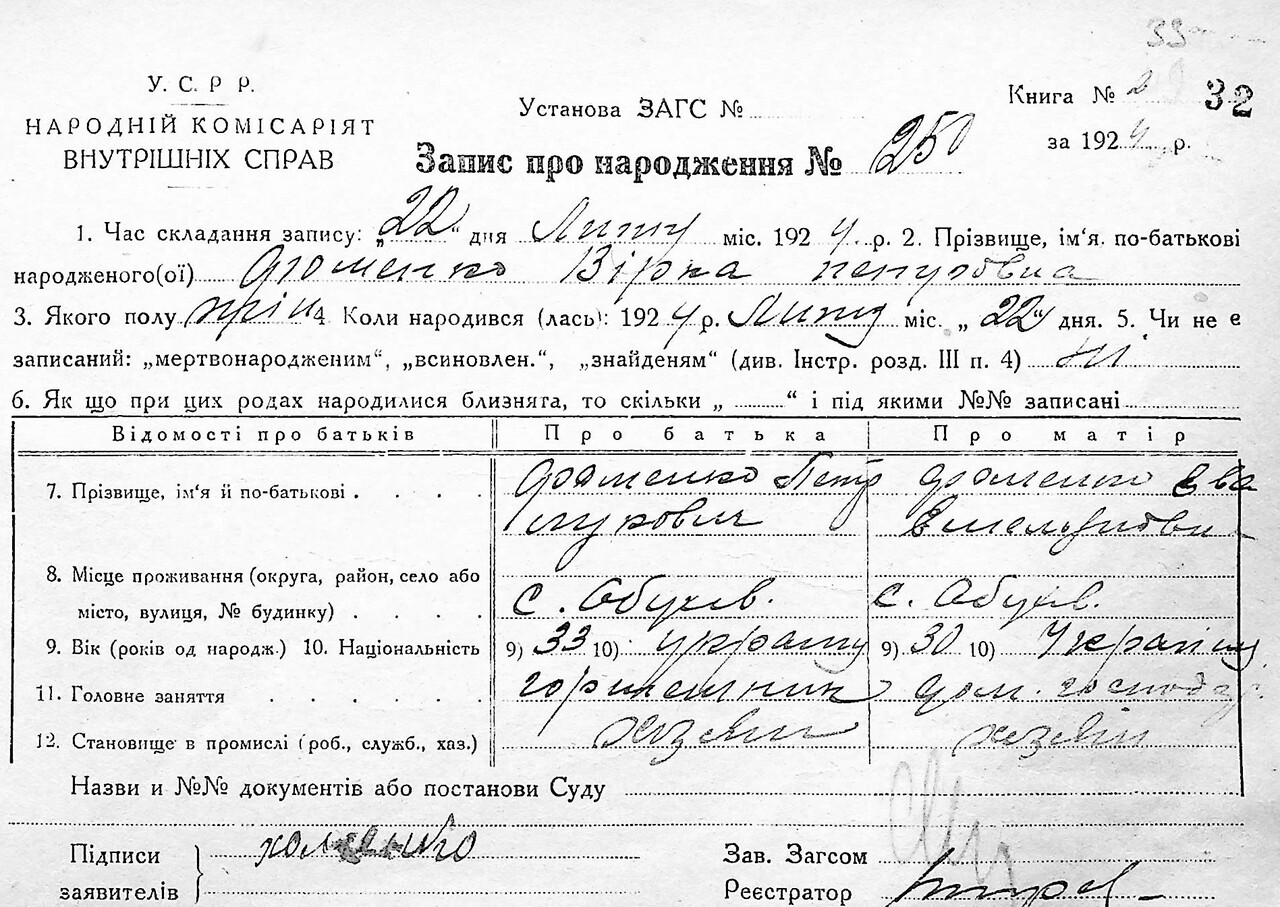 33
У. С. Р Р.
НАРОДНІЙ КОМІСАРІЯТ
ВНУТРІШНІХ СПРАВ
Установа ЗАГС №
Книга № 2 32
за 1924 р.
Запис про народження № 250
1. Час складання запису: „22“ дня Лютц міс. 1924 р. 2. Прізвище, ім‘я. по-батькові
народженого(ої) Вірка
3. Якого полу жріп 4 Коли народився (лась): 1924 р. Лютц міс. „22“ дня. 5. Чи не є
записаний: „мертвонародженим“, „всиновлен.“, „знайденям“ (див. Інстр. розд. III п. 4) ні
6. Як що при цих родах народилися близнята, то скільки „ “ і під якими №№ записані
Відомості про батьків Про батька Про матір
7. Прізвище, ім‘я й по-батькові . . . . Петр Ева
8. Місце проживання (округа, район, село або
місто, вулиця, № будинку) . . . . с. Обухів. с. Обухів.
9. Вік (років од народж.) 10. Національність 9) 33 10) українц 9) 30 10) Українц
11. Головне заняття . . . . . дом. господар.
12. Становище в промислі (роб., служб., хаз.) хазяин хазяин
Назви и №№ документів або постанови Суду
Підписи
заявителів
Зав. Загсом
Реєстратор